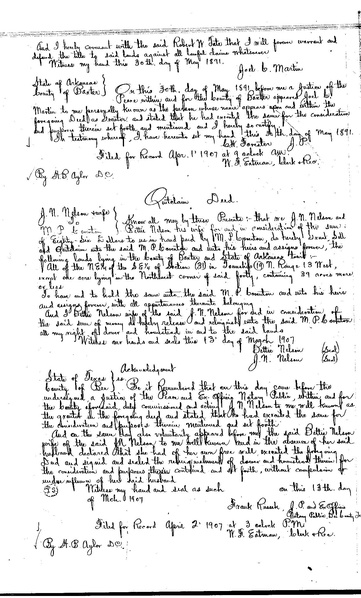 And I hereby covenant with the said Robert W. Tate that I will forever warrant and
defend the title to said lands against all lawful claims whatsoever
Witness my hand this 30th day of May 1891.
Joel C. Martin
State of Arkansas
County of Baxter
On this 30th day of May 1891, before me a Justice of the
Peace within and for the County of Baxter appeared Joel C.
Martin to me personally known as the person whose name appears upon and within the
foregoing Deed as Grantor and stated that he had executed the same for the consideration
and purposes therein set forth and mentioned and I hereby so certify
In testimony whereof, I have hereunto set my hand this 30th day of May 1891.
J.P.
Filed for Record Apr. 1 1907 at 9 oclock A.M.
W. F. Eatman, Clerk & Rec.
By H. B. Aylor D.C.
Quitclaim Deed.
J. N. Nelson & wife
To
M. P. Counton
Know all men by these Presents: - that we J. N. Nelson and
Bettie Nelson his wife for and in consideration of the sum
of Eighty Six Dollars to us in hand paid by M. P. Counton, do hereby Grant Sell
and Quitclaim unto the said M. P. Counton and unto his heirs and assigns forever, the
following lands lying in the County of Baxter and State of Arkansas to wit: -
All of the N.E.¼ of the S.E.¼ of Section in Township (19) N. Range 13 West,
except one acre lying in the Northeast corner of said forty, containing 39 acres more
or less
To have and to hold the same unto the said M. P. Counton and unto his heirs
and assigns forever with all appurtenances thereunto belonging
And I Bettie Nelson wife of the said J. N. Nelson for and in consideration of
the said sum of money do hereby release and relinquish unto the said M. P. Counton
all my right of dower and homestead in and to the said lands
Witness our hands and seals this 13 day of March 1907
Bettie Nelson (Seal)
J. N. Nelson (Seal)
Acknowledgment
State of Texas
County of
Be it Remembered that on this day came before the
undersigned, a Justice of the Peace and Ex Officio Notary Public, within and for
the County aforesaid, duly commissioned and acting J. N. Nelson to me well known as
the grantor in the foregoing Deed and stated that he had executed the same for
the consideration and purposes therein mentioned and set forth
And on the same day voluntarily appeared before me the said Bettie Nelson
wife of the said J. N. Nelson to me well known and in the absence of her said
husband declared that she had of her own free will executed the foregoing
Deed and signed and sealed the relinquishment of dower and homestead therein for
the consideration and purposes therein contained and set forth, without compulsion or
undue influence of her said husband
Witness my hand and seal as such on this 13th day
of Mch. 1907
Frank J.P. and Ex Officio
Notary Public
Filed for Record April 2 1907 at 3 oclock P.M.
W. F. Eatman, Clerk & Rec.
By H. B. Aylor D.C.